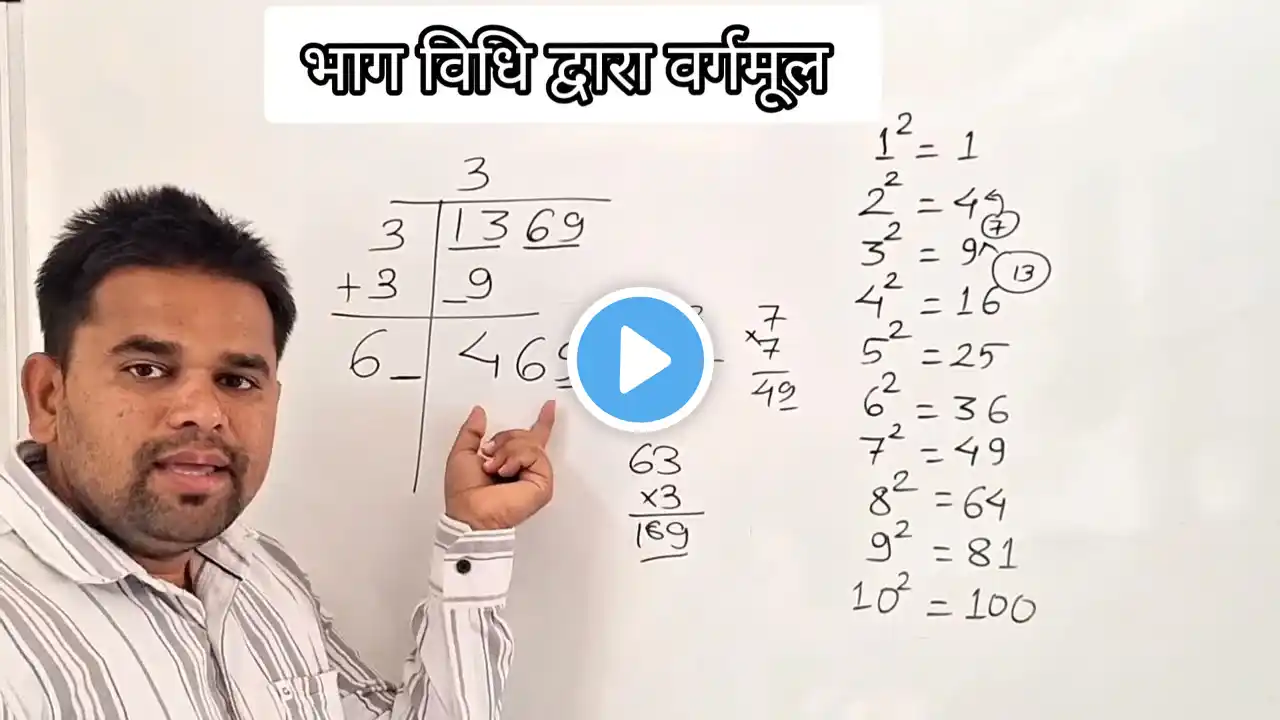 भाग विधि द्वारा वर्गमूल
3
3 1369
+3 _9
6_ 469
7
×7
49
63
×3
169
1² = 1
2² = 4
7
3² = 9
13
4² = 16
5² = 25
6² = 36
7² = 49
8² = 64
9² = 81
10² = 100